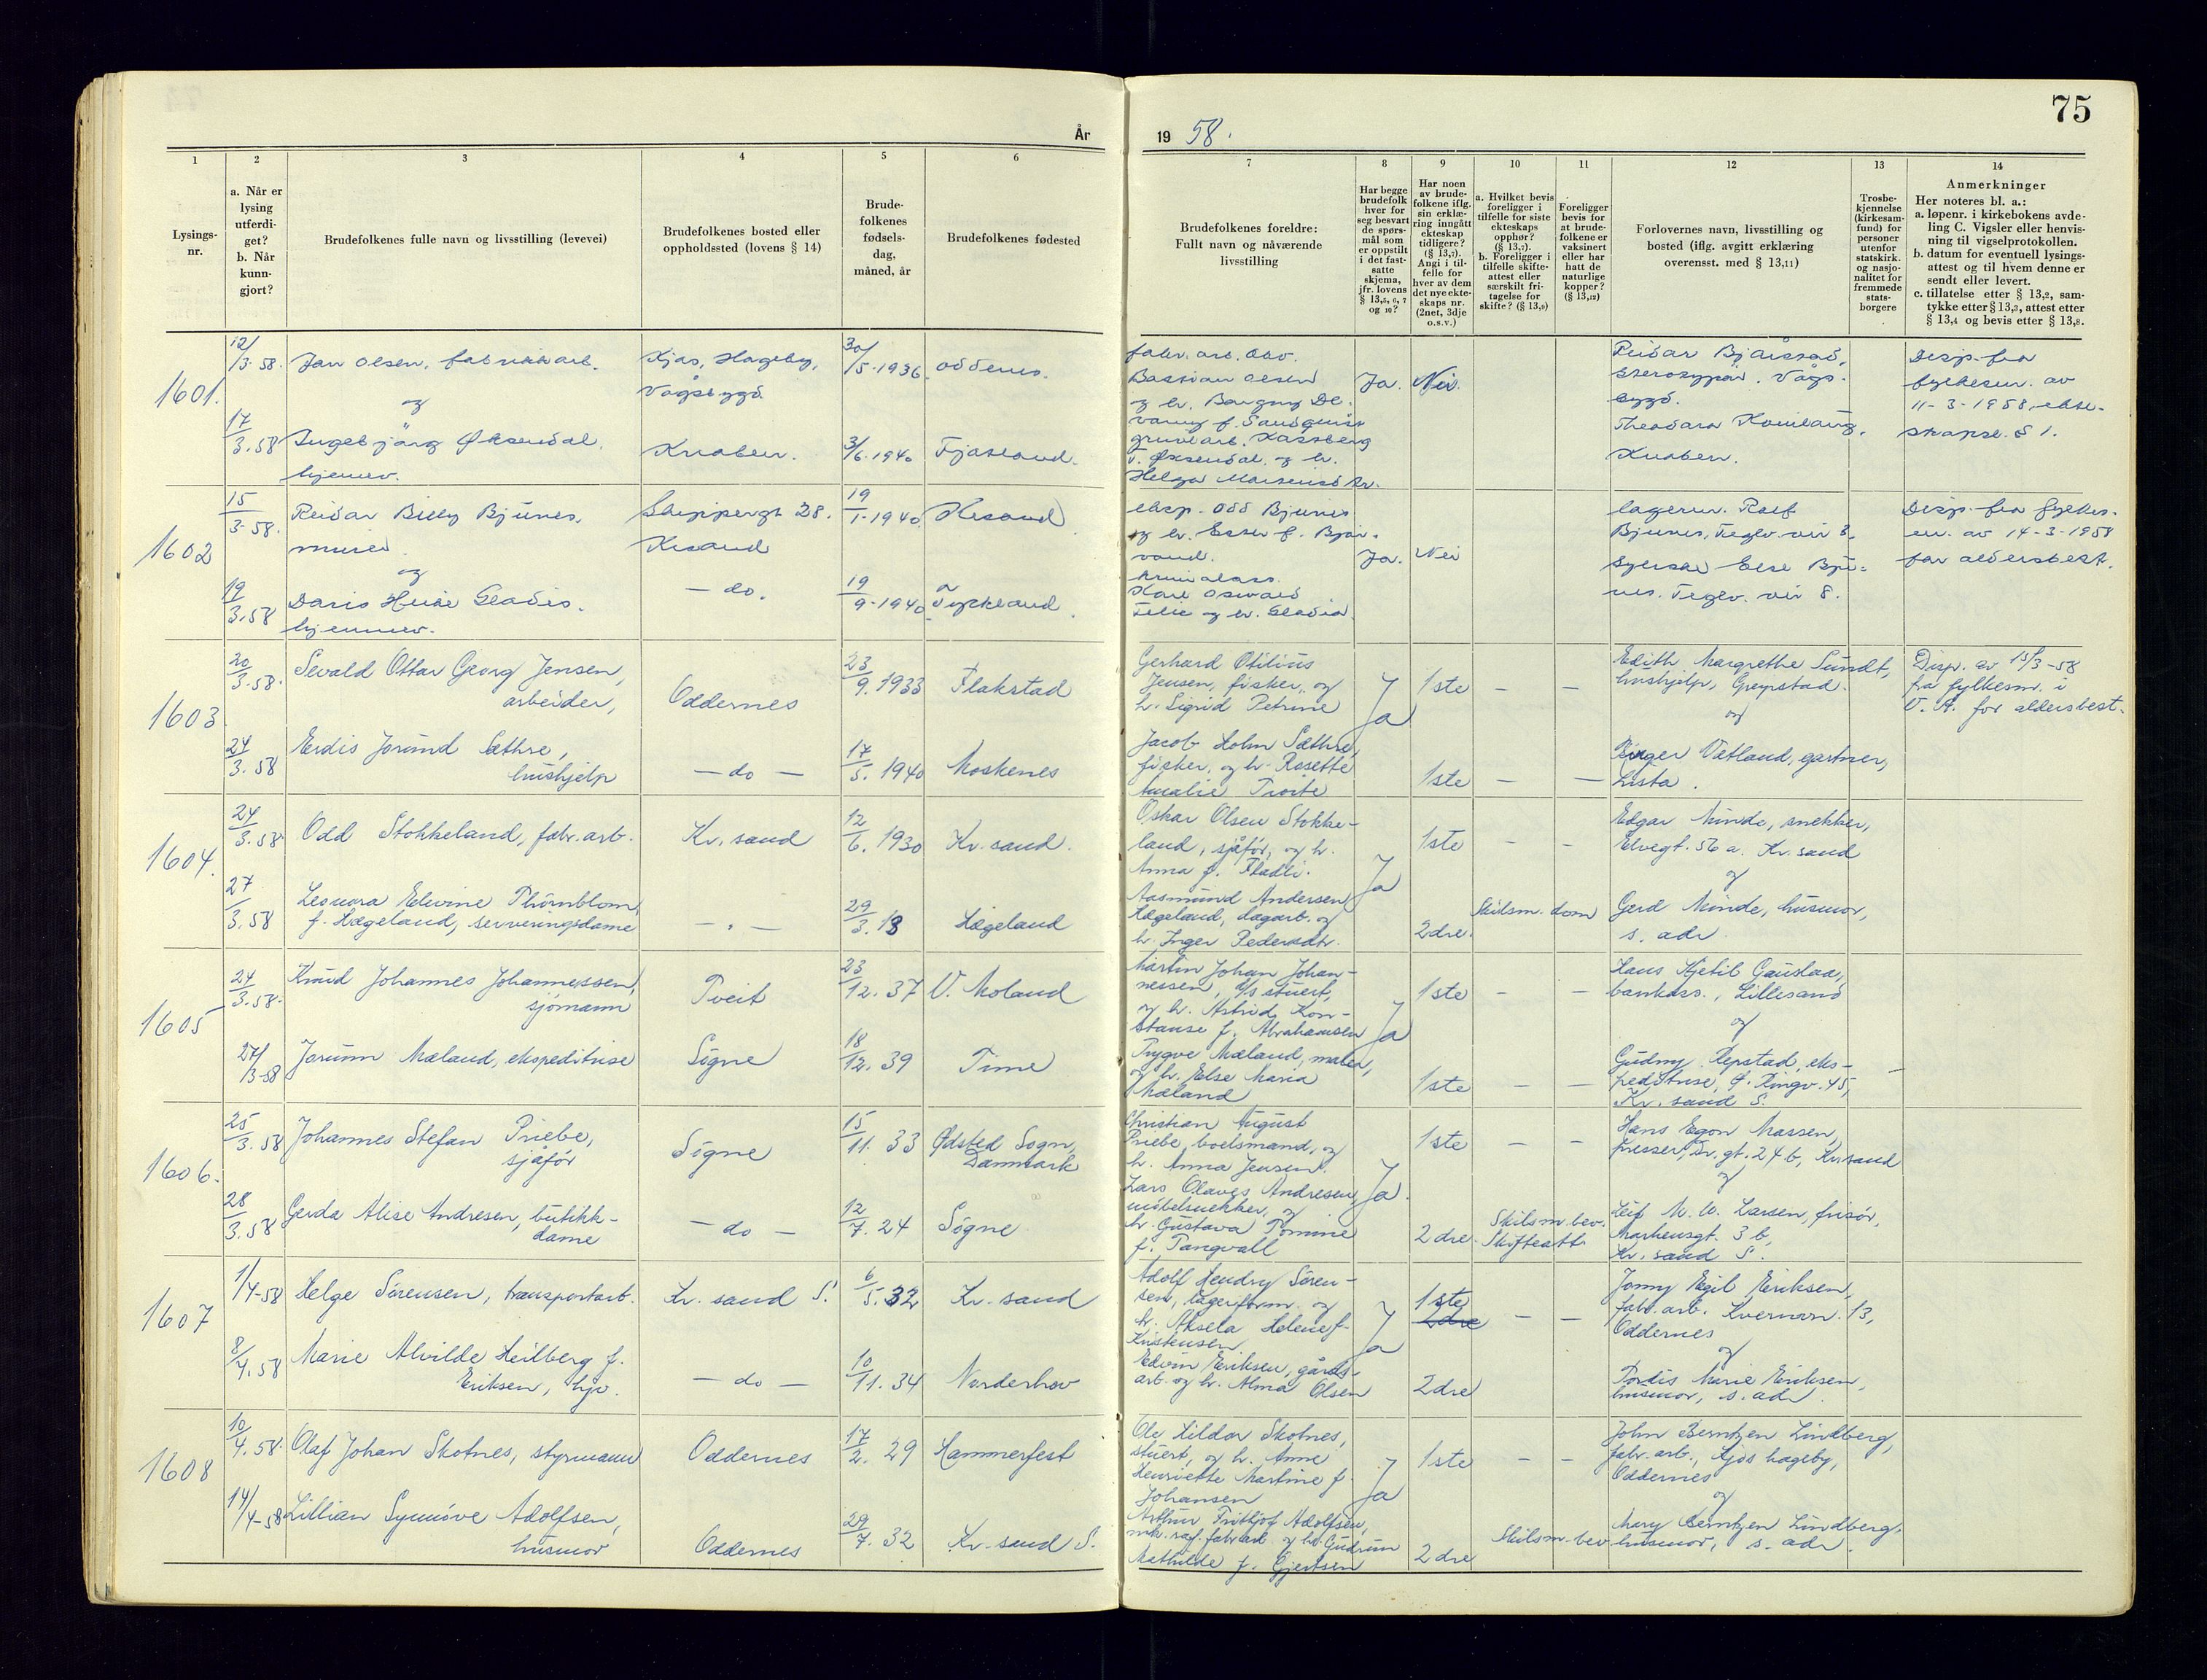 75
År 19 58.
1 2 3 4 5 6 7 8 9 10 11 12 13 14
Lysings-
nr.
a. Når er
lysing
utferdi-
get?
b. Når
kunn-
gjort?
Brudefolkenes fulle navn og livsstilling (levevei)
Brudefolkenes bosted eller
oppholdssted (lovens § 14)
Brude-
folkenes
fødsels-
dag,
måned, år
Brudefolkenes fødested
Brudefolkenes foreldre:
Fullt navn og nåværende
livsstilling
Har begge
brudefolk
hver for
seg besvart
de spørs-
mål som
er oppstilt
i det fast-
satte
skjema,
jfr. lovens
§ 13,5, 6, 7
og 10?
Har noen
av brude-
folkene iflg.
sin erklæ-
ring inngått
ekteskap
tidligere?
(§ 13,7).
Angi i til-
felle for
hver av dem
det nye ekte-
skaps nr.
(2net, 3dje
o.s.v.)
a. Hvilket bevis
foreligger i
tilfelle for siste
ekteskaps
opphør?
(§ 13,7).
b. Foreligger i
tilfelle skifte-
attest eller
særskilt fri-
tagelse for
skifte? (§ 13,9)
Foreligger
bevis for
at brude-
folkene er
vaksinert
eller har
hatt de
naturlige
kopper?
(§ 13,12)
Forlovernes navn, livsstilling og
bosted (iflg. avgitt erklæring
overensst. med § 13,11)
Trosbe-
kjennelse
(kirkesam-
fund) for
personer
utenfor
statskirk.
og nasjo-
nalitet for
fremmede
stats-
borgere
Anmerkninger
Her noteres bl. a.:
a. løpenr. i kirkebokens avde-
ling C. Vigsler eller henvis-
ning til vigselprotokollen.
b. datum for eventuell lysings-
attest og til hvem denne er
sendt eller levert.
c. tillatelse etter § 13,2, sam-
tykke etter § 13,3, attest etter
§ 13,4 og bevis etter § 13,8.
1601.
12/3-58.
Jan Olsen, fabrikkarb.
og
Kjos, Hageby,
Vågsbygd.
30/5-1936.
Oddernes.
fabr. arb. Olav
Bastian Olsen
Ja. Nei.
Reidar
Vågs-
bygd.
Disp. fra
fylkesm. av
11-3-1958, ekte-
skapsl. § 1.
17/3.58
Ingebjörg Øksendal.
hjemmev.
Knaben.
3/6-1940
Fjotland.
gruvearb.
T. Øksendal. og h.
Helga
Theodora
Knaben.
1602
15/3-58.
Reidar Billy Bjunes,
murer
og
Skippergt 28.
Krsand
19/1-1940.
Krsand
eksp. Odd Bjunes
og h. Ester f. Bjør-
vand.
Ja. Nei
lagerm. Rolf
Bjunes, Teglv. vei 8.
Disp. fra fylkes-
m. av 14-3-1958
for aldersbest.
19/3.58
Doris Gladis.
hjemmev.
- do.
19/9-1940.
Tyskland.
Karl Oswald
og h. Gladis.
syerske Else Bju-
nes. Teglv. vei 8.
1603
20/3.58.
Sevald Ottar Georg Jensen,
arbeider,
Oddernes
23/9. 1933
Flakstad
Gerhard Otilius
Jensen, fisker, og
h. Sigrid Petrine
Ja
1ste - -
Edith Margrethe Sundt,
hushjelp, Greipstad.
og
Disp. av 15/3-58
fra fylkesm. i
V. A. for aldersbest.
24/3.58
Erdis Jorund Sæthre,
hushjelp
- do -
17/5. 1940
Moskenes
Jacob Holm Sæthre,
fisker, og h. Rosette
Amalie
1ste - -
Birger Vatland, gartner,
Lista.
1604.
24/3.58
Odd Stokkeland, fabr. arb.
Kr. sand
12/6. 1930
Kr. sand.
Oskar Olsen Stokke-
land, sjåför, og h.
Anna f. Fladli.
Ja
1ste - -
Edgar Minde, snekker,
Elvegt. 56 a. Kr. sand
og
27/3.58
Leonora Elevine Thörnblom
f. Hægeland, serveringsdame
- " -
29/3. 18
Hægeland
Aasmund Andersen
Hægeland, dagarb. og
h. Inger Pedersdtr.
2dre.
Skilsm. dom
Gerd Minde, husmor,
s. adr.
1605
24/3.58.
Knud Johannes Johannessen,
sjömann
Tveit
23/12. 37
V. Moland
Martin Johan Johan-
nessen, stuert,
og h. Astrid Kon-
stanse f. Abrahamsen
Ja
1ste - -
Hans Kjetil Gauslaa,
bankass., Lillesand
og
27/3-58
Jorunn Mæland, ekspeditrise
Søgne
18/12. 39
Time
Trygve Mæland, maler,
og h. Else Maria
Mæland
1ste - -
Gudny Repstad, eks-
peditrise, Ø. Ringv. 45,
Kr. sand S.
1606.
25/3.58
Johannes Stefan Priebe,
sjåför
Søgne
15/11. 33
Ødsted Sogn,
Danmark
Christian August
Priebe, boelsmand, og
h. Anna Jensen.
Ja.
1ste - -
Hans Egon Massen,
presser, Dr. gt. 24 b, Kr. sand
og
28/3.58
Gerda Alise Andresen, butikk-
dame
- do -
12/7. 24
Søgne
Lars Olaves Andresen,
møbelsnekker, og
h. Gustava Tomine
f. Tangvall
2dre
Skilsm. bev.
Skifteatt.
Leif M. W. Larsen, frisør,
Markensgt. 3 b,
Kr. sand S.
1607
1/4-58
Helge Sörensen, transportarb.
Kr. sand S.
6/5. 32
Kr. sand
Adolf Hendry Sören-
sen, lagerform. og
h. Aksela Helene f.
Kristensen
Ja
1ste
2dre - -
Jonny Egil Eriksen,
fabr. arb. Kvernvn. 13,
Oddernes
og
8/4.58
Marie Alvilde Heilberg f.
Eriksen, hjv.
- do -
10/11. 34
Norderhov
Edvin Eriksen, gårds-
arb. og h. Alma Olsen
2dre
Tordis Marie Eriksen,
husmor, s. adr.
1608
10/4.58.
Olaf Johan Skotnes, styrmann
Oddernes
17/2. 29
Hammerfest
Ole Hildor Skotnes,
stuert, og h. Anne
Henriette Martine f.
Johansen
Ja
1ste - -
John Berntzen Lindberg,
fabr. arb., Kjos hageby,
Oddernes
og
14/4-58
Lillian Synnöve Adolfsen,
husmor
Oddernes
29/7. 32
Kr. sand S.
Arthur Fridtjof Adolfsen,
nik. raf. fabr. arb. og h. Gudrun
Mathilde f. Gjertsen
2dre
Skilsm. bev
Mary Berntzen Lindberg,
husmor, s. adr.